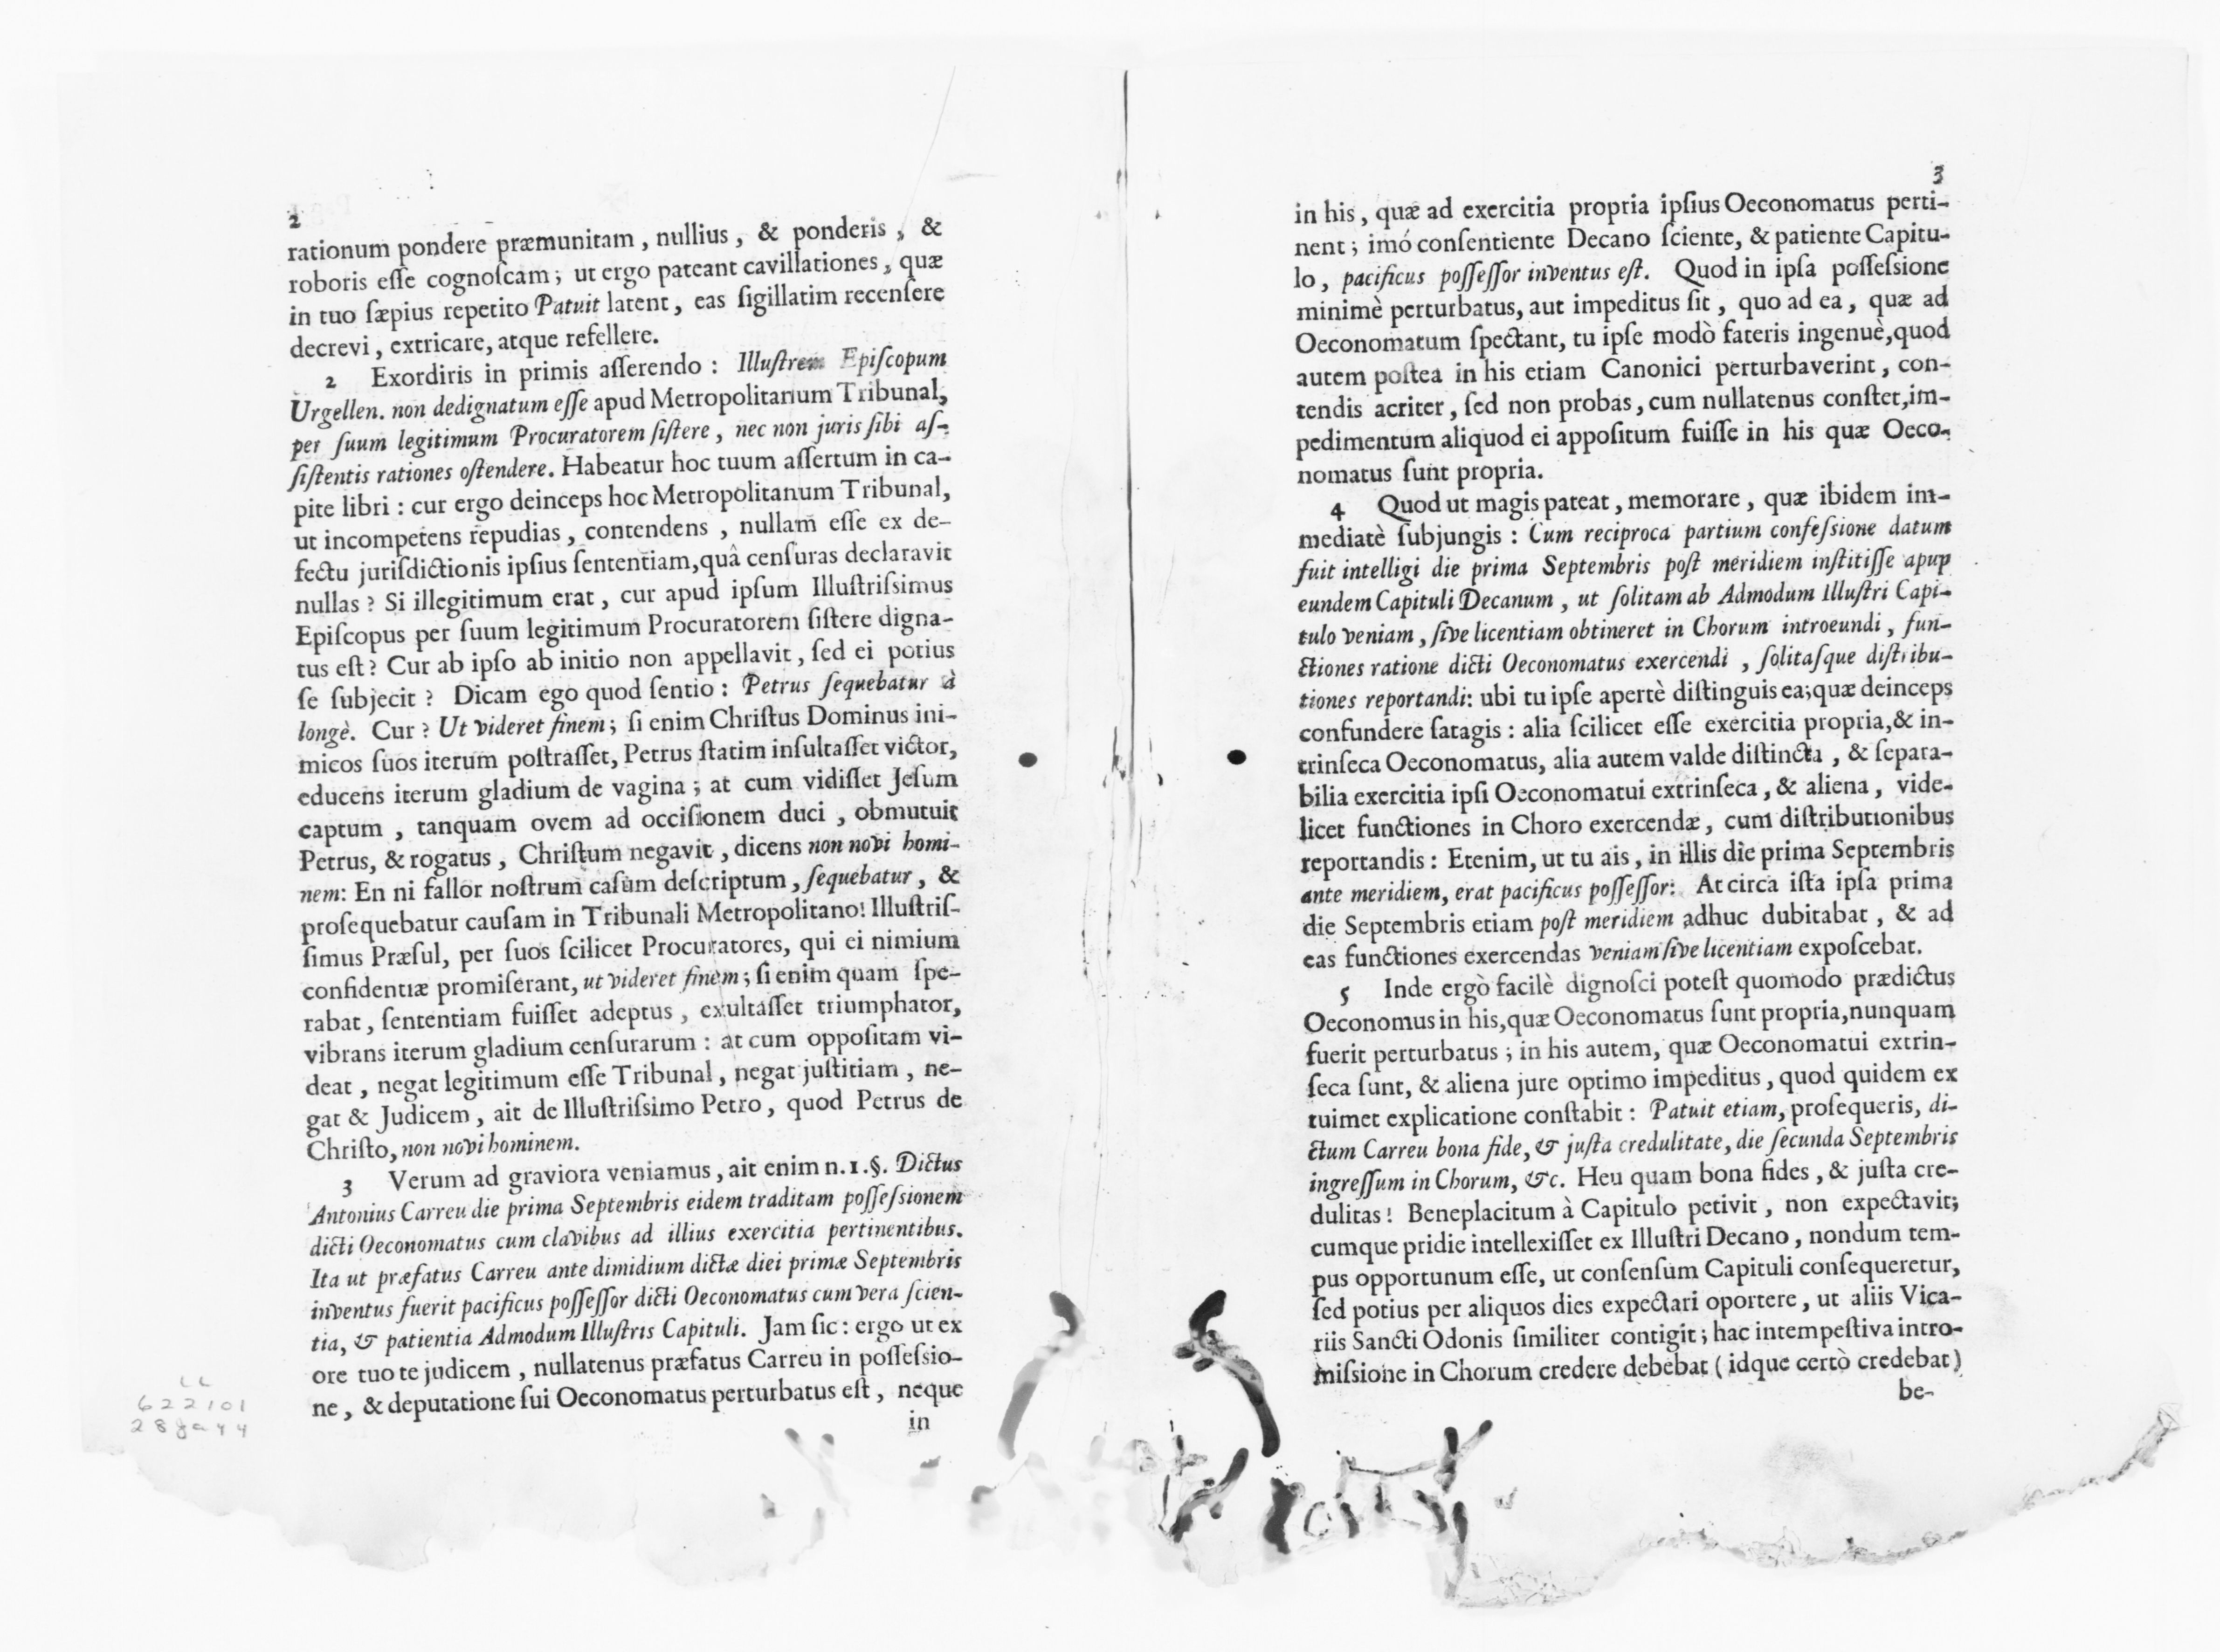 2
rationum pondere præmunitam , nullius , & ponderis , &
roboris eſſe cognoſcam ; ut ergo pateant cavillationes , quæ
in tuo ſæpius repetito Patuit latent , eas ſigillatim recenſere
decrevi , extricare, atque refellere.
2 Exordiris in primis aſſerendo : Illuſtrem Epiſcopum
Urgellen. non dedignatum eſſe apud Metropolitanum Tribunal,
per ſuum legitimum Procuratorem ſiſtere , nec non juris ſibi aſ-
ſiſtentis rationes oſtendere. Habeatur hoc tuum aſſertum in ca-
pite libri : cur ergo deinceps hoc Metropolitanum Tribunal,
ut incompetens repudias , contendens , nullam eſſe ex de-
fectu juriſdictionis ipſius ſententiam,quâ cenſuras declaravit
nullas ? Si illegitimum erat , cur apud ipſum Illuſtriſsimus
Epiſcopus per ſuum legitimum Procuratorem ſiſtere digna-
tus eſt ? Cur ab ipſo ab initio non appellavit , ſed ei potius
ſe ſubjecit ? Dicam ego quod ſentio : Petrus ſequebatur à
longè. Cur ? Ut videret finem ; ſi enim Chriſtus Dominus ini-
micos ſuos iterum poſtraſſet, Petrus ſtatim inſultaſſet victor,
educens iterum gladium de vagina ; at cum vidiſſet Jeſum
captum , tanquam ovem ad occiſionem duci , obmutuit
Petrus, & rogatus , Chriſtum negavit , dicens non novi homi-
nem: En ni fallor noſtrum caſum deſcriptum , ſequebatur , &
proſequebatur cauſam in Tribunali Metropolitano! Illuſtriſ-
ſimus Præſul, per ſuos ſcilicet Procuratores, qui ei nimium
confidentiæ promiſerant, ut videret finem ; ſi enim quam ſpe-
rabat , ſententiam fuiſſet adeptus , exultaſſet triumphator,
vibrans iterum gladium cenſurarum : at cum oppoſitam vi-
deat , negat legitimum eſſe Tribunal , negat juſtitiam , ne-
gat & Judicem , ait de Illuſtriſsimo Petro , quod Petrus de
Chriſto, non novi hominem.
3 Verum ad graviora veniamus , ait enim n.1.§. Dictus
Antonius Carreu die prima Septembris eidem traditam poſſeſsionem
dicti Oeconomatus cum clavibus ad illius exercitia pertinentibus.
Ita ut præfatus Carreu ante dimidium dictæ diei primæ Septembris
inventus fuerit pacificus poſſeſſor dicti Oeconomatus cum vera ſcien-
tia, & patientia Admodum Illuſtris Capituli. Jam ſic : ergo ut ex
ore tuo te judicem , nullatenus præfatus Carreu in poſſeſsio-
ne , & deputatione ſui Oeconomatus perturbatus eſt , neque
in
LL
622101
28ga44
3
in his , quæ ad exercitia propria ipſius Oeconomatus perti-
nent ; imó conſentiente Decano ſciente, & patiente Capitu-
lo , pacificus poſſeſſor inventus eſt. Quod in ipſa poſſeſsione
minimè perturbatus, aut impeditus ſit , quo ad ea , quæ ad
Oeconomatum ſpectant, tu ipſe modò fateris ingenuè,quod
autem poſtea in his etiam Canonici perturbaverint , con-
tendis acriter , ſed non probas , cum nullatenus conſtet,im-
pedimentum aliquod ei appoſitum fuiſſe in his quæ Oeco-
nomatus ſunt propria.
4 Quod ut magis pateat , memorare , quæ ibidem im-
mediatè ſubjungis : Cum reciproca partium confeſsione datum
fuit intelligi die prima Septembris poſt meridiem inſtitiſſe apup
eundem Capituli Decanum , ut ſolitam ab Admodum Illuſtri Capi-
tulo veniam , ſive licentiam obtineret in Chorum introeundi , fun-
ctiones ratione dicti Oeconomatus exercendi , ſolitaſque diſtribu-
tiones reportandi: ubi tu ipſe apertè diſtinguis ea;quæ deinceps
confundere ſatagis : alia ſcilicet eſſe exercitia propria,& in-
trinſeca Oeconomatus, alia autem valde diſtincta , & ſepara-
bilia exercitia ipſi Oeconomatui extrinſeca , & aliena , vide-
licet functiones in Choro exercendæ , cum diſtributionibus
reportandis : Etenim, ut tu ais , in illis die prima Septembris
ante meridiem, erat pacificus poſſeſſor: At circa iſta ipſa prima
die Septembris etiam poſt meridiem adhuc dubitabat , & ad
eas functiones exercendas veniam ſive licentiam expoſcebat.
5 Inde ergò facilè dignoſci poteſt quomodo prædictus
Oeconomus in his,quæ Oeconomatus ſunt propria,nunquam
fuerit perturbatus ; in his autem, quæ Oeconomatui extrin-
ſeca ſunt, & aliena jure optimo impeditus , quod quidem ex
tuimet explicatione conſtabit : Patuit etiam, proſequeris, di-
ctum Carreu bona fide, & juſta credulitate, die ſecunda Septembris
ingreſſum in Chorum, &c. Heu quam bona fides , & juſta cre-
dulitas ! Beneplacitum à Capitulo petivit , non expectavit;
cumque pridie intellexiſſet ex Illuſtri Decano , nondum tem-
pus opportunum eſſe, ut conſenſum Capituli conſequeretur,
ſed potius per aliquos dies expectari oportere , ut aliis Vica-
riis Sancti Odonis ſimiliter contigit ; hac intempeſtiva intro-
miſsione in Chorum credere debebat ( idque certò credebat)
be-